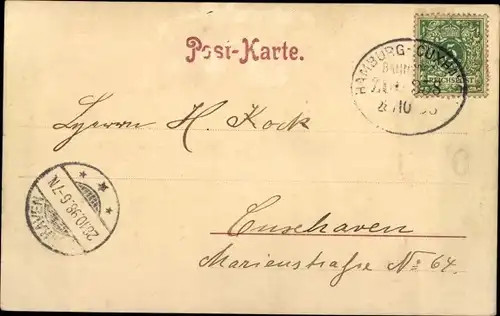 Post-Karte.
HAMBURG-CUXH
BAHN
28/10 98
Herrn H. Kock
CUXHAVEN
28.10.98.6-7N.
Cuxhaven
Marienstraſse No 64.